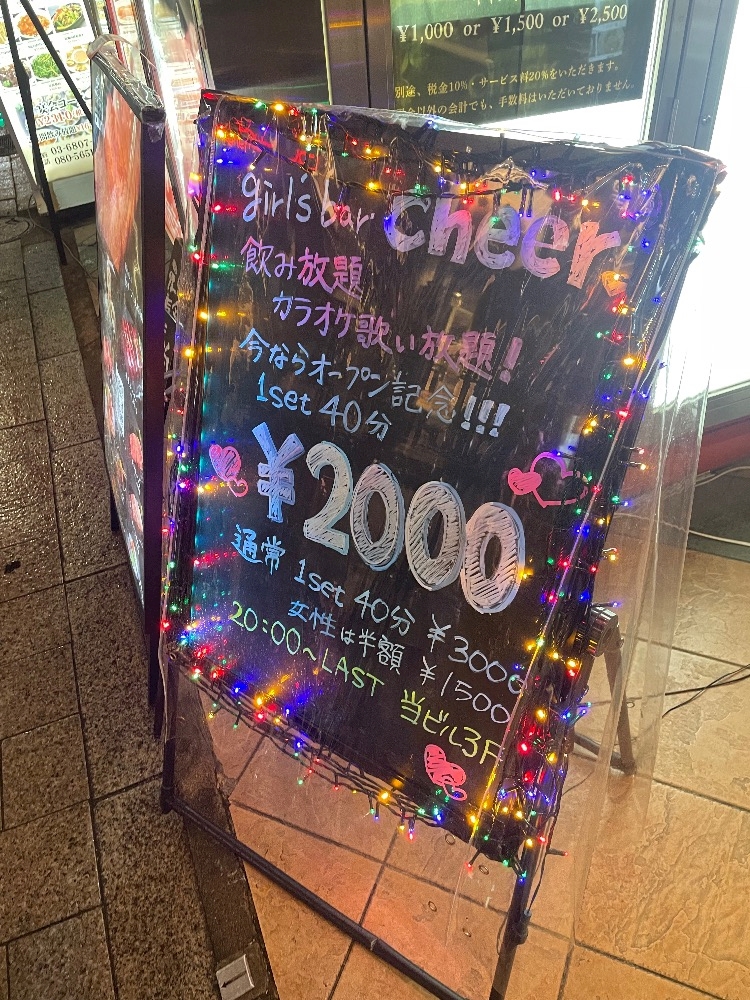 ¥1,000 or ¥1,500 or ¥2,500
別途、税金10%・サービス料20%をいただきます。
以外の会計でも、手数料はいただいておりません。
03-6807
080-565
girl's bar cheer
飲み放題
カラオケ歌い放題!
今ならオープン記念!!!
1set 40分
¥2000
通常 1set 40分 ¥3000
女性は半額 ¥1500
20:00~LAST 当ビル3F